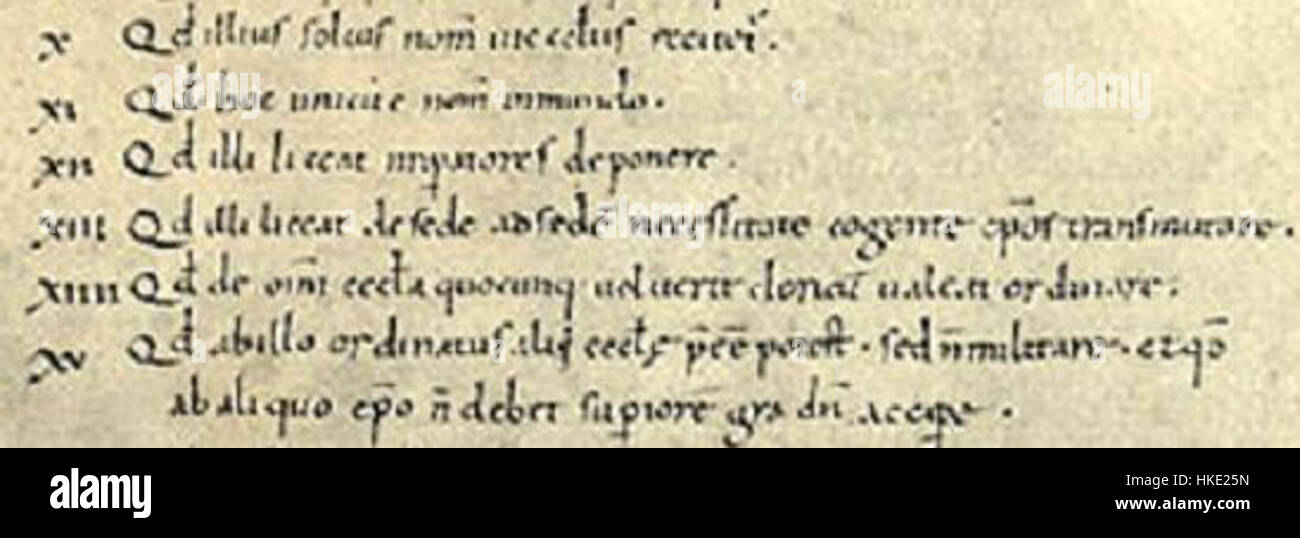 x Qđ illius solius nom̄ in ecclīis recitet̄.
xi Qđ hoc unicū ē nom̄ in mundo.
xii Qđ illi liceat imp̄atores deponere.
xiii Qđ illi liceat de sede ad sedē necessitate cogente ep̄os transmutare.
xiiii Qđ de om̄i eccłia quocunq uoluerit clericū ualeat ordinare.
xv Qđ ab illo ordinatus alii eccłę p̄eē potest. sed n̄ militare. et qđ
ab aliquo ep̄o n̄ debet sup̄iorē gradū accipe.
alamy stock photo
HKE25N
www.alamy.com